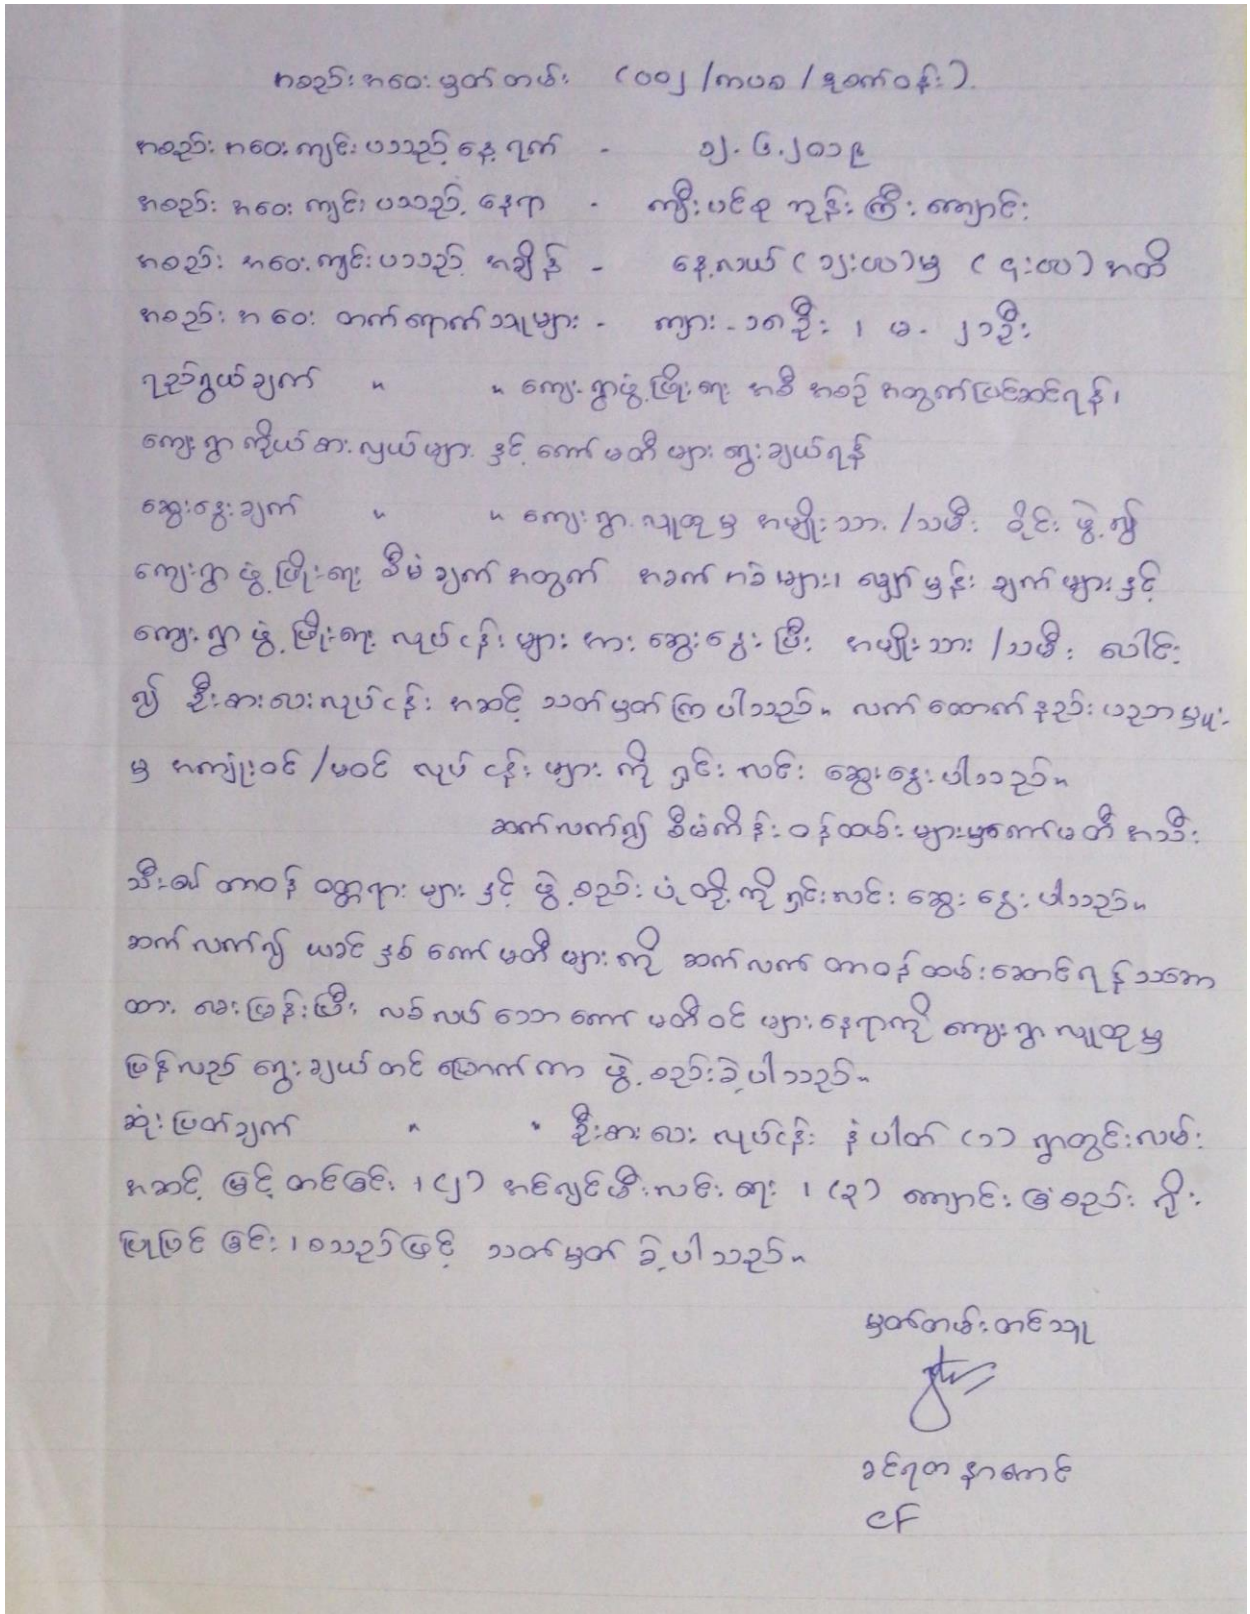 အစည်းအဝေးမှတ်တမ်း (၀၀၂ /ကပစ /
အစည်းအဝေးကျင်းပသည့်နေ့ရက် - ၁၂.၆.၂၀၁၉
အစည်းအဝေးကျင်းပသည့်နေရာ - ကျီးပင်စု ဘုန်းကြီးကျောင်း
အစည်းအဝေးကျင်းပသည့်အချိန် - နေ့လယ် (၁၂:၀၀) မှ ( ၄:၀၀) အထိ
အစည်းအဝေး တက်ရောက်သူများ - ကျား - ၁၈ဦး ၊ မ - ၂၁ဦး
ရည်ရွယ်ချက် " " ကျေးရွာဖွံ့ဖြိုးရေး အစီအစဉ်အတွက်ပြင်ဆင်ရန်၊
ကျေးရွာကိုယ်စားလှယ်များနှင့် ကော်မတီများရွေးချယ်ရန်
ဆွေးနွေးချက် " " ကျေးရွာလူထုမှ အမျိုးသား/သမီး ဝိုင်းဖွဲ့၍
ကျေးရွာဖွံ့ဖြိုးရေး စီမံချက်အတွက် အခက်အခဲများ၊ မျှော်မှန်းချက်များနှင့်
ကျေးရွာဖွံ့ဖြိုးရေးလုပ်ငန်းများအား ဆွေးနွေးပြီး အမျိုးသား/သမီး ပေါင်း
၍ ဦးစားပေးလုပ်ငန်းအဆင့် သတ်မှတ်ကြပါသည်။ လက်ထောက်နည်းပညာမှူး
မှ အကျုံးဝင်/မဝင် လုပ်ငန်းများကို ရှင်းလင်းဆွေးနွေးပါသည်။
ဆက်လက်၍ စီမံကိန်းဝန်ထမ်းများမှကော်မတီအသီး
သီး၏ တာဝန်ဝတ္တရားများနှင့် ဖွဲ့စည်းပုံတို့ကိုရှင်းလင်းဆွေးနွေးပါသည်။
ဆက်လက်၍ ယခင်နှစ်ကော်မတီများကို ဆက်လက်တာဝန်ထမ်းဆောင်ရန်သဘော
ထားမေးမြန်းပြီး လစ်လပ်သော ကော်မတီဝင်များနေရာကို ကျေးရွာလူထုမှ
ပြန်လည်ရွေးချယ်တင်မြှောက်ကာ ဖွဲ့စည်းခဲ့ပါသည်။
ဆုံးဖြတ်ချက် " " ဦးစားပေးလုပ်ငန်း နံပါတ် (၁) ရွာတွင်းလမ်း
အဆင့်မြှင့်တင်ခြင်း ၊ (၂) အင်လျင်မီးလင်းရေး ၊ (၃) ကျောင်းခြံစည်းရိုး
ပြုပြင်ခြင်း ၊ စသည်ဖြင့် သတ်မှတ်ခဲ့ပါသည်။
မှတ်တမ်းတင်သူ
ခင်ရတနာအောင်
CF